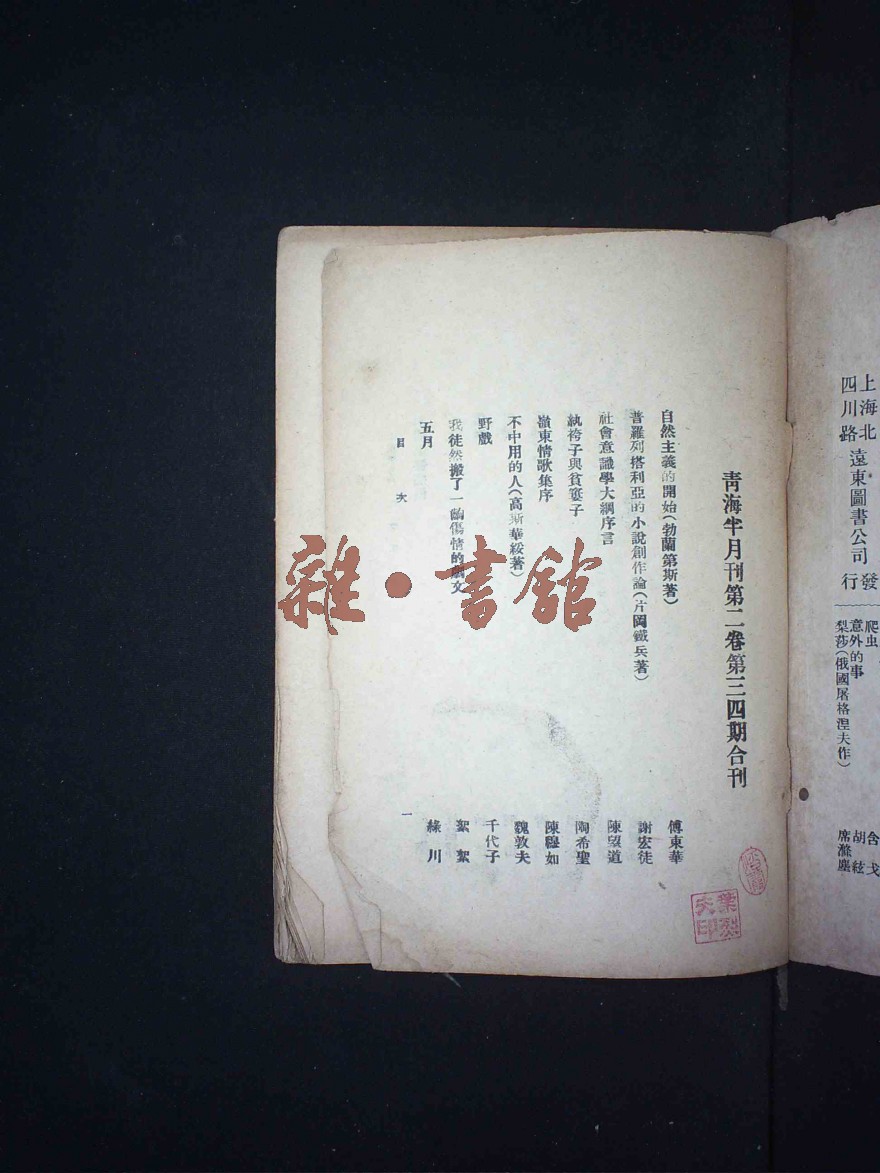 上海北四川路 遠東圖書公司 發行
爬虫 含戈
意外的事 胡絃
梨莎(俄國屠格涅夫作) 席滌塵
青海半月刊第二卷第三四期合刊
自然主義的開始(勃蘭第斯著) 傅東華
普羅列搭利亞的小說創作論(片岡鐵兵著) 謝宏徒
社會意識學大綱序言 陳望道
紈袴子與貧窶子 陶希聖
嶺東情歌集序 陳穆如
不中用的人(高斯華綏著) 魏敦夫
野戲 千代子
我徒然搬了一齣傷情的戲文 絮絮
五月 綠川
目次 一
雜·書館
葉烈夫印